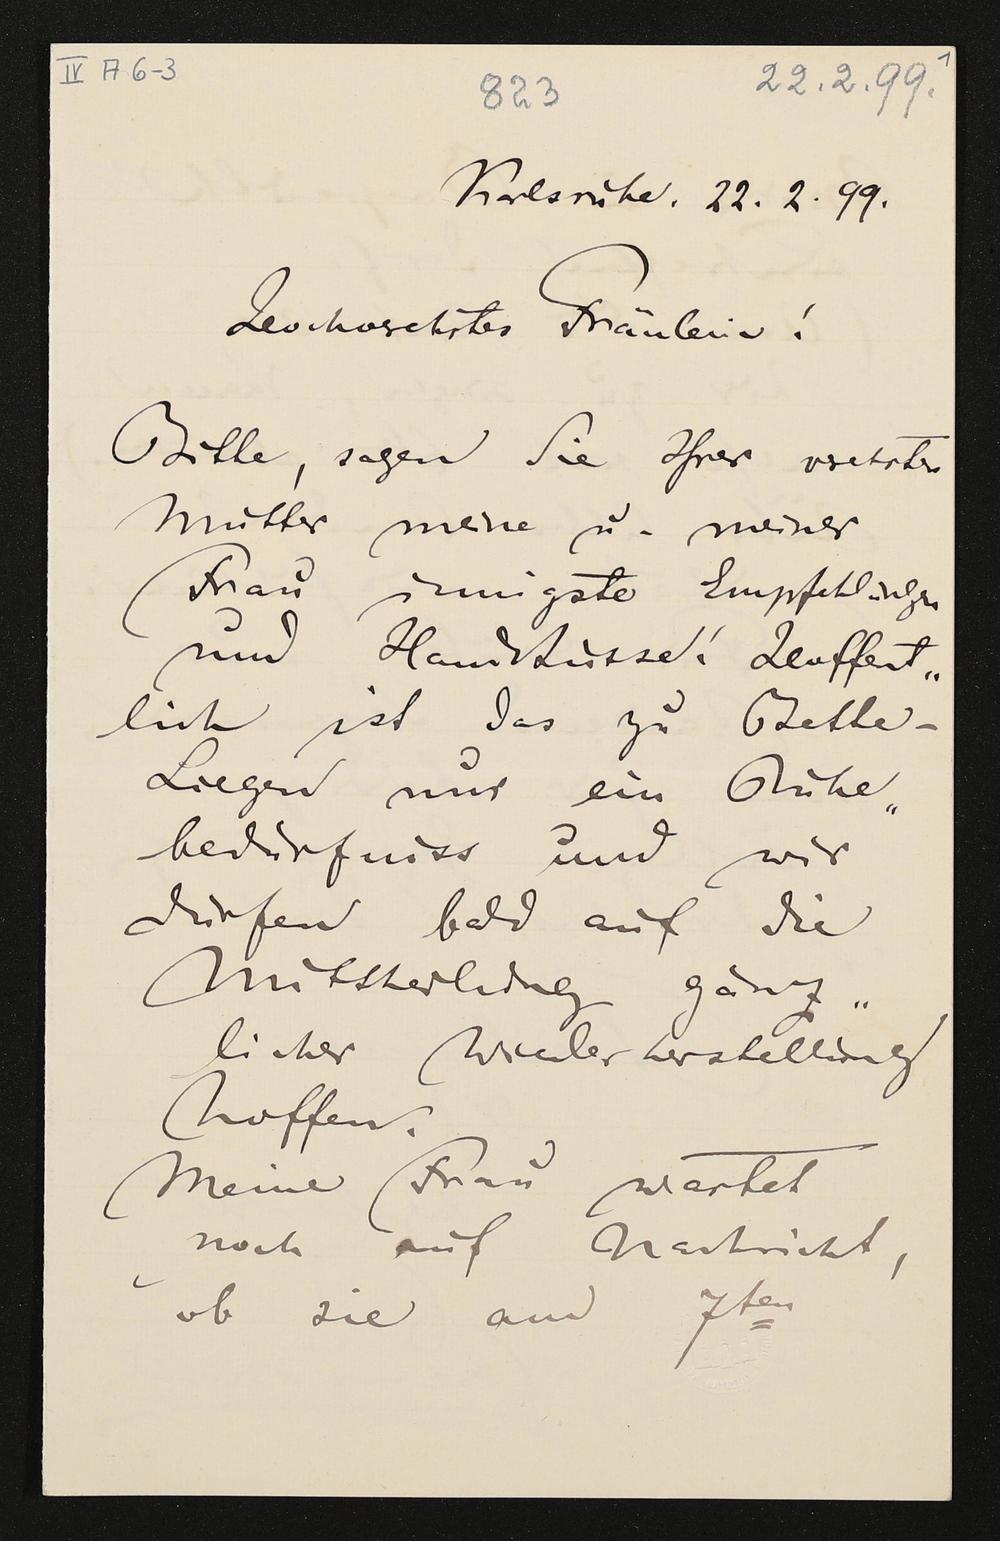 IV A 6-3
823
22.2.99.1
Karlsruhe. 22. 2. 99.
Hochverehrtes Fräulein!
Bitte, sagen Sie Ihrer verehrten
Mutter meine u. meiner
Frau innigste Empfehlungen
und Handküsse! Hoffent„
lich ist das zu Bette-
Liegen nur ein Ruhe„
bedürfniss und wir
dürfen bald auf die
Mittheilung gänz„
licher Wiederherstellung
hoffen.
Meine Frau wartet
noch auf Nachricht,
ob sie am 7ten